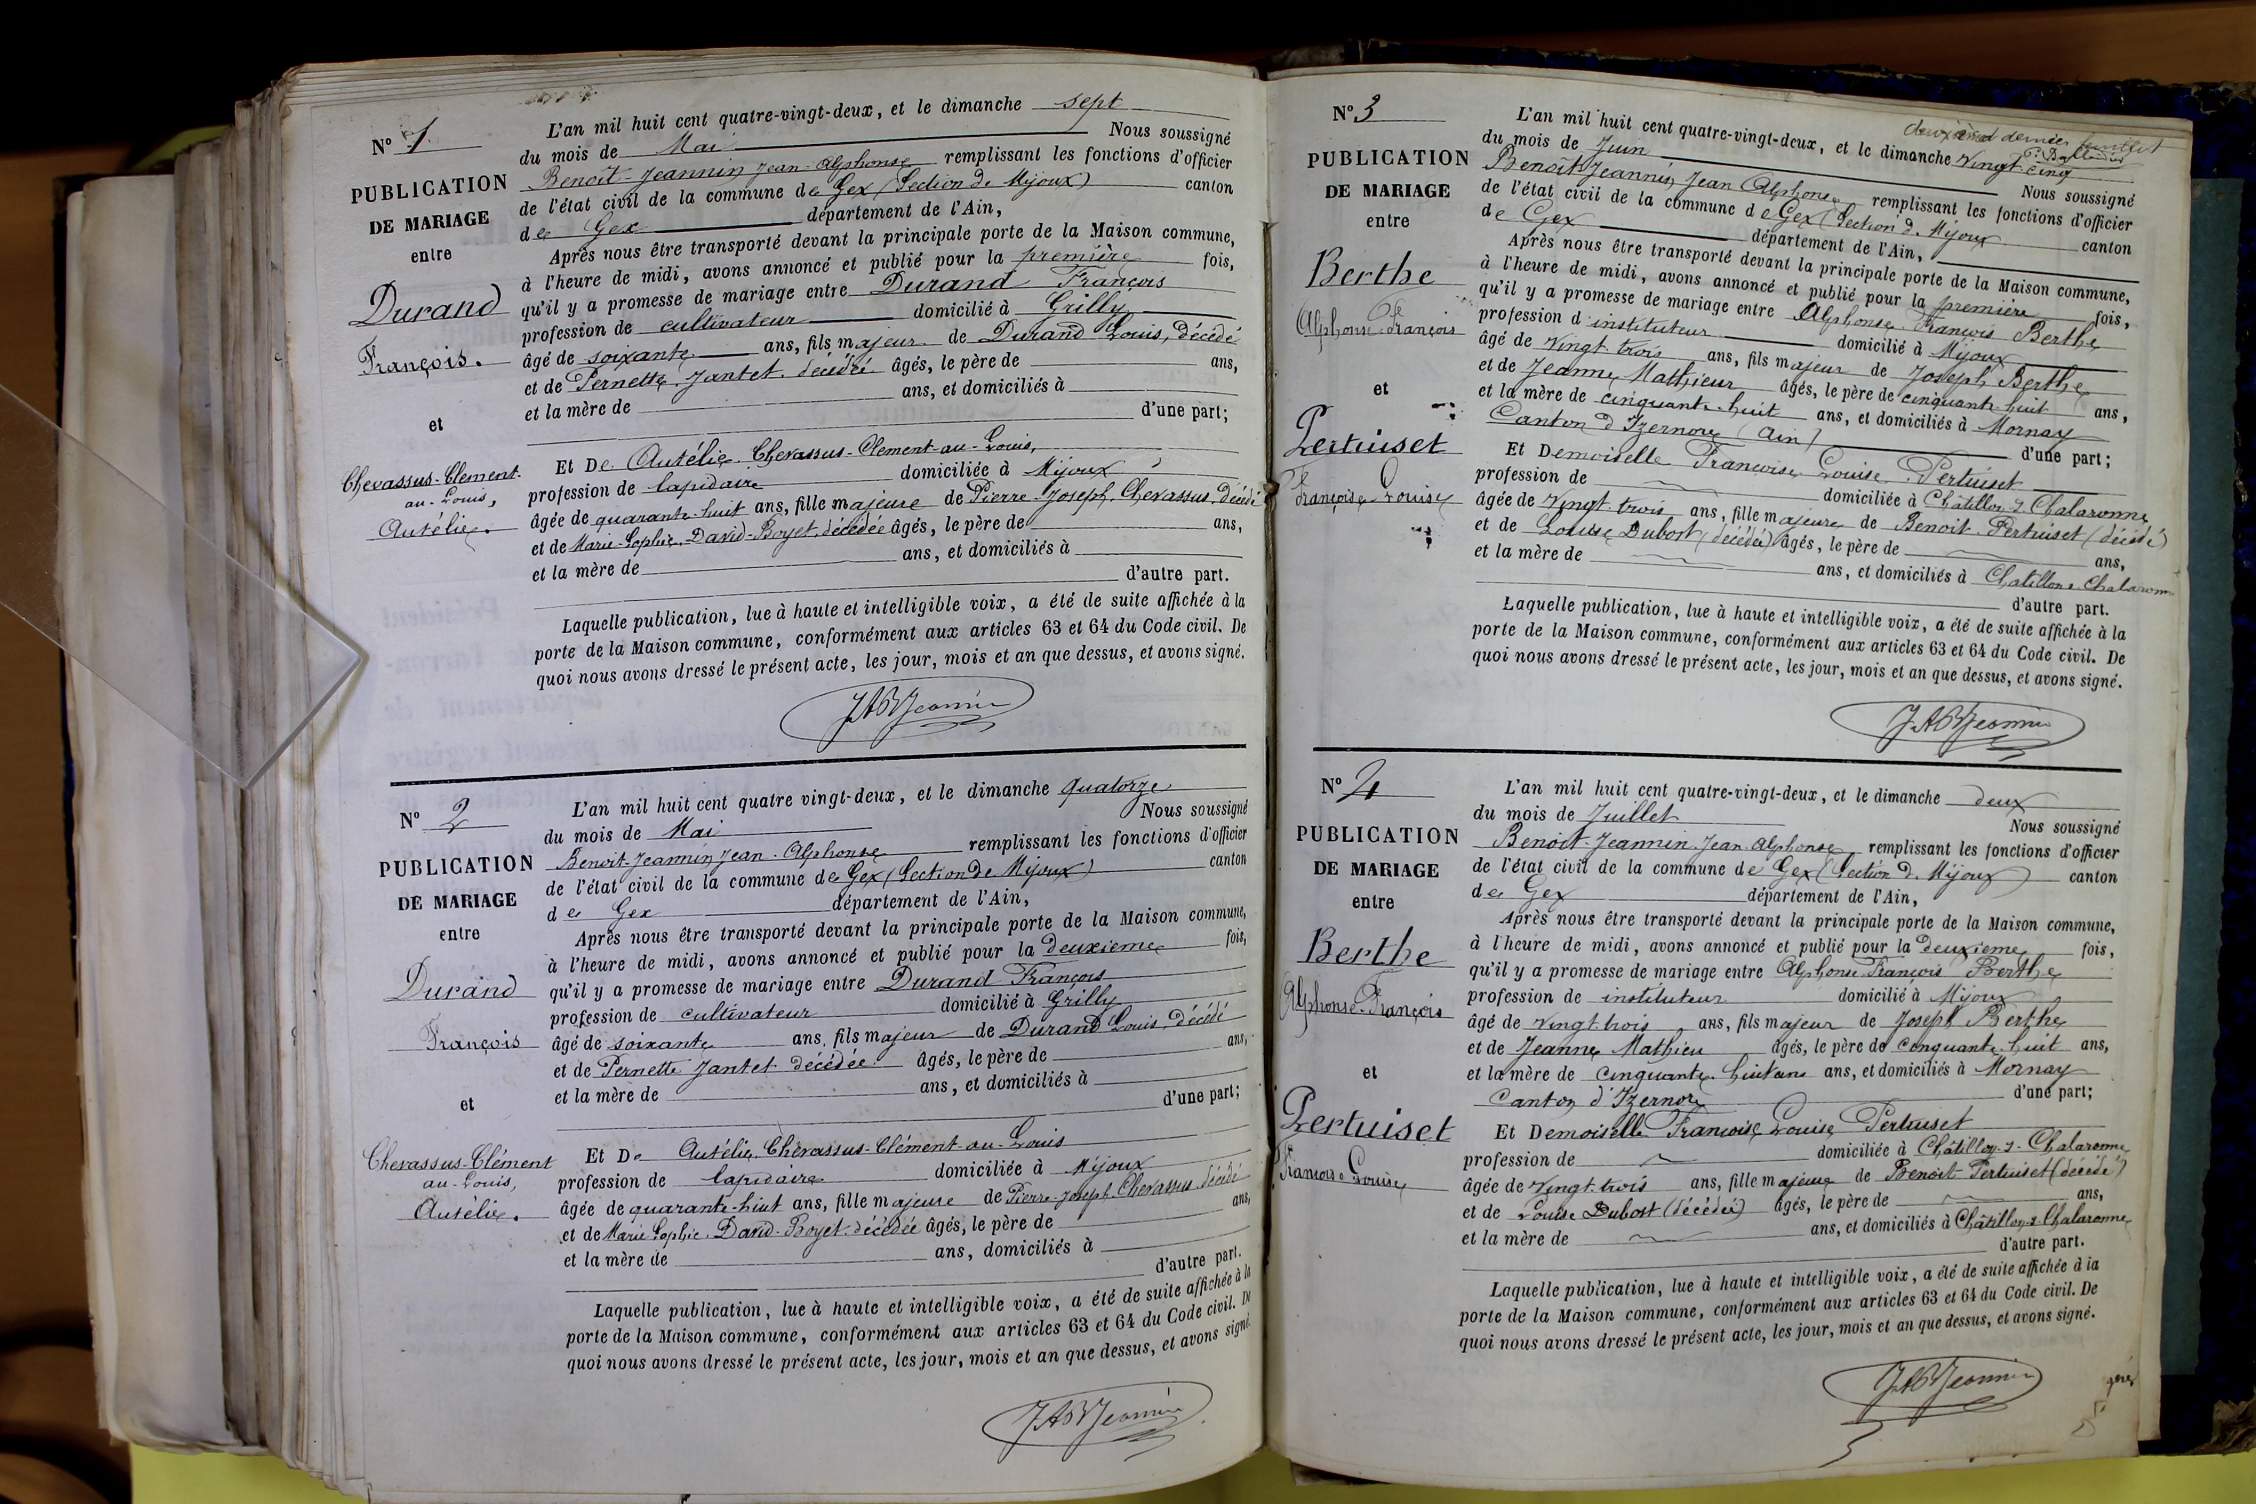 N° 1
PUBLICATION
DE MARIAGE
entre
Durand
François.
et
Chevassus-Clément-
au-Louis,
Autélie.
L'an mil huit cent quatre-vingt-deux, et le dimanche sept
du mois de Mai Nous soussigné
Benoit-Jeannin Jean-Alphonse remplissant les fonctions d'officier
de l'état civil de la commune de Gex (Section de Mijoux) canton
de Gex département de l'Ain,
Après nous être transporté devant la principale porte de la Maison commune,
à l'heure de midi, avons annoncé et publié pour la première fois,
qu'il y a promesse de mariage entre Durand François
profession de cultivateur domicilié à Grilly
âgé de soixante ans, fils majeur de Durand Louis, décédé
et de Pernette Jantet décédée âgés, le père de ans,
et la mère de ans, et domiciliés à
d'une part;
Et De Autélie Chevassus-Clément-au-Louis,
profession de lapidaire domiciliée à Mijoux
âgée de quarante-huit ans, fille majeure de Pierre-Joseph Chevassus décédé
et de Marie-Sophie David-Boyet décédée âgés, le père de ans,
et la mère de ans, et domiciliés à
d'autre part.
Laquelle publication, lue à haute et intelligible voix, a été de suite affichée à la
porte de la Maison commune, conformément aux articles 63 et 64 du Code civil. De
quoi nous avons dressé le présent acte, les jour, mois et an que dessus, et avons signé.
JABJeannin
N° 2
PUBLICATION
DE MARIAGE
entre
Durand
François
et
Chevassus-Clément
au-Louis,
Autélie.
L'an mil huit cent quatre vingt-deux, et le dimanche quatorze
du mois de Mai Nous soussigné
Benoit-Jeannin Jean-Alphonse remplissant les fonctions d'officier
de l'état civil de la commune de Gex (Section de Mijoux) canton
de Gex département de l'Ain,
Après nous être transporté devant la principale porte de la Maison commune,
à l'heure de midi, avons annoncé et publié pour la deuxieme fois,
qu'il y a promesse de mariage entre Durand François
profession de cultivateur domicilié à Grilly
âgé de soixante ans, fils majeur de Durand Louis, décédé
et de Pernette Jantet décédée âgés, le père de ans,
et la mère de ans, et domiciliés à
d'une part;
Et De Autélie Chevassus-Clément-au-Louis
profession de lapidaire domiciliée à Mijoux
âgée de quarante-huit ans, fille majeure de Pierre-Joseph Chevassus décédé
et de Marie Sophie David-Boyet décédée âgés, le père de ans,
et la mère de ans, domiciliés à
d'autre part.
Laquelle publication, lue à haute et intelligible voix, a été de suite affichée à la
porte de la Maison commune, conformément aux articles 63 et 64 du Code civil. De
quoi nous avons dressé le présent acte, les jour, mois et an que dessus, et avons signé.
JABJeannin
deuxième et dernier feuillet
N° 3
PUBLICATION
DE MARIAGE
entre
Berthe
Alphonse-François
et
Pertuiset
Françoise Louise
L'an mil huit cent quatre-vingt-deux, et le dimanche vingt-cinq
du mois de Juin Nous soussigné
Benoit-Jeannin Jean Alphonse remplissant les fonctions d'officier
de l'état civil de la commune de Gex (Section de Mijoux canton
de Gex département de l'Ain,
Après nous être transporté devant la principale porte de la Maison commune,
à l'heure de midi, avons annoncé et publié pour la première fois,
qu'il y a promesse de mariage entre Alphonse François Berthe
profession d'instituteur domicilié à Mijoux
âgé de vingt trois ans, fils majeur de Joseph Berthe
et de Jeanne Mathieur âgés, le père de cinquante-huit ans,
et la mère de cinquante-huit ans, et domiciliés à Mornay
Canton d'Izernore (Ain) d'une part;
Et Demoiselle Francoise Louise Pertuiset
profession de domiciliée à Châtillon-s-Chalaronne
âgée de vingt trois ans, fille majeure de Benoit Pertuiset (décédé)
et de Louise Dubost (décédée) âgés, le père de ans,
et la mère de ans, et domiciliés à Chatillon-s-Chalaronne
d'autre part.
Laquelle publication, lue à haute et intelligible voix, a été de suite affichée à la
porte de la Maison commune, conformément aux articles 63 et 64 du Code civil. De
quoi nous avons dressé le présent acte, les jour, mois et an que dessus, et avons signé.
JABJeannin
N° 4
PUBLICATION
DE MARIAGE
entre
Berthe
Alphonse-François
et
Pertuiset
Francoise Louise
L'an mil huit cent quatre-vingt-deux, et le dimanche deux
du mois de Juillet Nous soussigné
Benoit-Jeannin Jean-Alphonse remplissant les fonctions d'officier
de l'état civil de la commune de Gex (Section de Mijoux) canton
de Gex département de l'Ain,
Après nous être transporté devant la principale porte de la Maison commune,
à l'heure de midi, avons annoncé et publié pour la deuxieme fois,
qu'il y a promesse de mariage entre Alphonse François Berthe
profession de instituteur domicilié à Mijoux
âgé de vingt-trois ans, fils majeur de Joseph Berthe
et de Jeanne Mathieu âgés, le père de cinquante-huit ans,
et la mère de cinquante-huit ans ans, et domiciliés à Mornay
Canton d'Izernore d'une part;
Et Demoiselle Francoise Louise Pertuiset
profession de domiciliée à Châtillon-s-Chalaronne
âgée de vingt-trois ans, fille majeure de Benoit Pertuiset (décédé)
et de Louise Dubost (décédée) âgés, le père de ans,
et la mère de ans, et domiciliés à Châtillon-s-Chalaronne
d'autre part.
Laquelle publication, lue à haute et intelligible voix, a été de suite affichée à la
porte de la Maison commune, conformément aux articles 63 et 64 du Code civil. De
quoi nous avons dressé le présent acte, les jour, mois et an que dessus, et avons signé.
JABJeannin